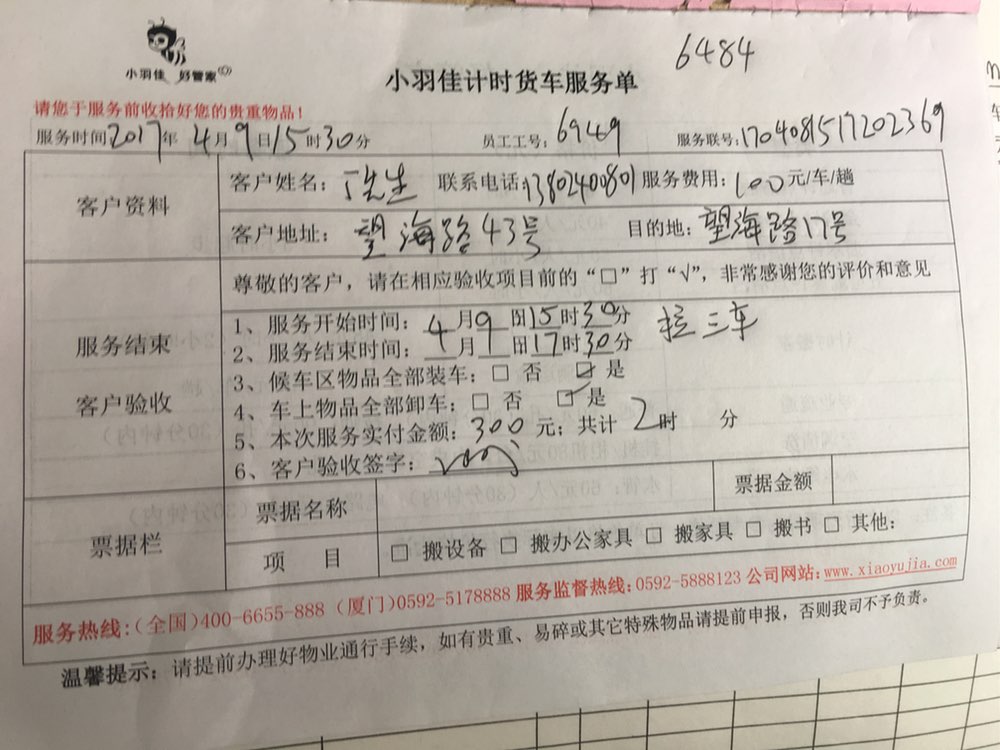 小羽佳 好管家
6484
小羽佳计时货车服务单
请您于服务前收拾好您的贵重物品！
服务时间2017年 4月9日15时30分 员工工号：6949 服务联号：1704081517202369
客户资料
客户姓名：丁先生 联系电话：13802400801 服务费用：100元/车/趟
客户地址：望海路43号 目的地：望海路17号
服务结束
客户验收
尊敬的客户，请在相应验收项目前的“□”打“√”，非常感谢您的评价和意见
1、服务开始时间：4月9日15时30分 拉三车
2、服务结束时间：_月_日17时30分
3、候车区物品全部装车：□ 否 ☑ 是
4、车上物品全部卸车：□ 否 ☑ 是
5、本次服务实付金额：300元；共计 2时 分
6、客户验收签字：
票据栏
票据名称 票据金额
项 目 □ 搬设备 □ 搬办公家具 □ 搬家具 □ 搬书 □ 其他：
服务热线：（全国）400-6655-888（厦门）0592-5178888 服务监督热线：0592-5888123 公司网站：www.xiaoyujia.com
温馨提示：请提前办理好物业通行手续，如有贵重、易碎或其它特殊物品请提前申报，否则我司不予负责。